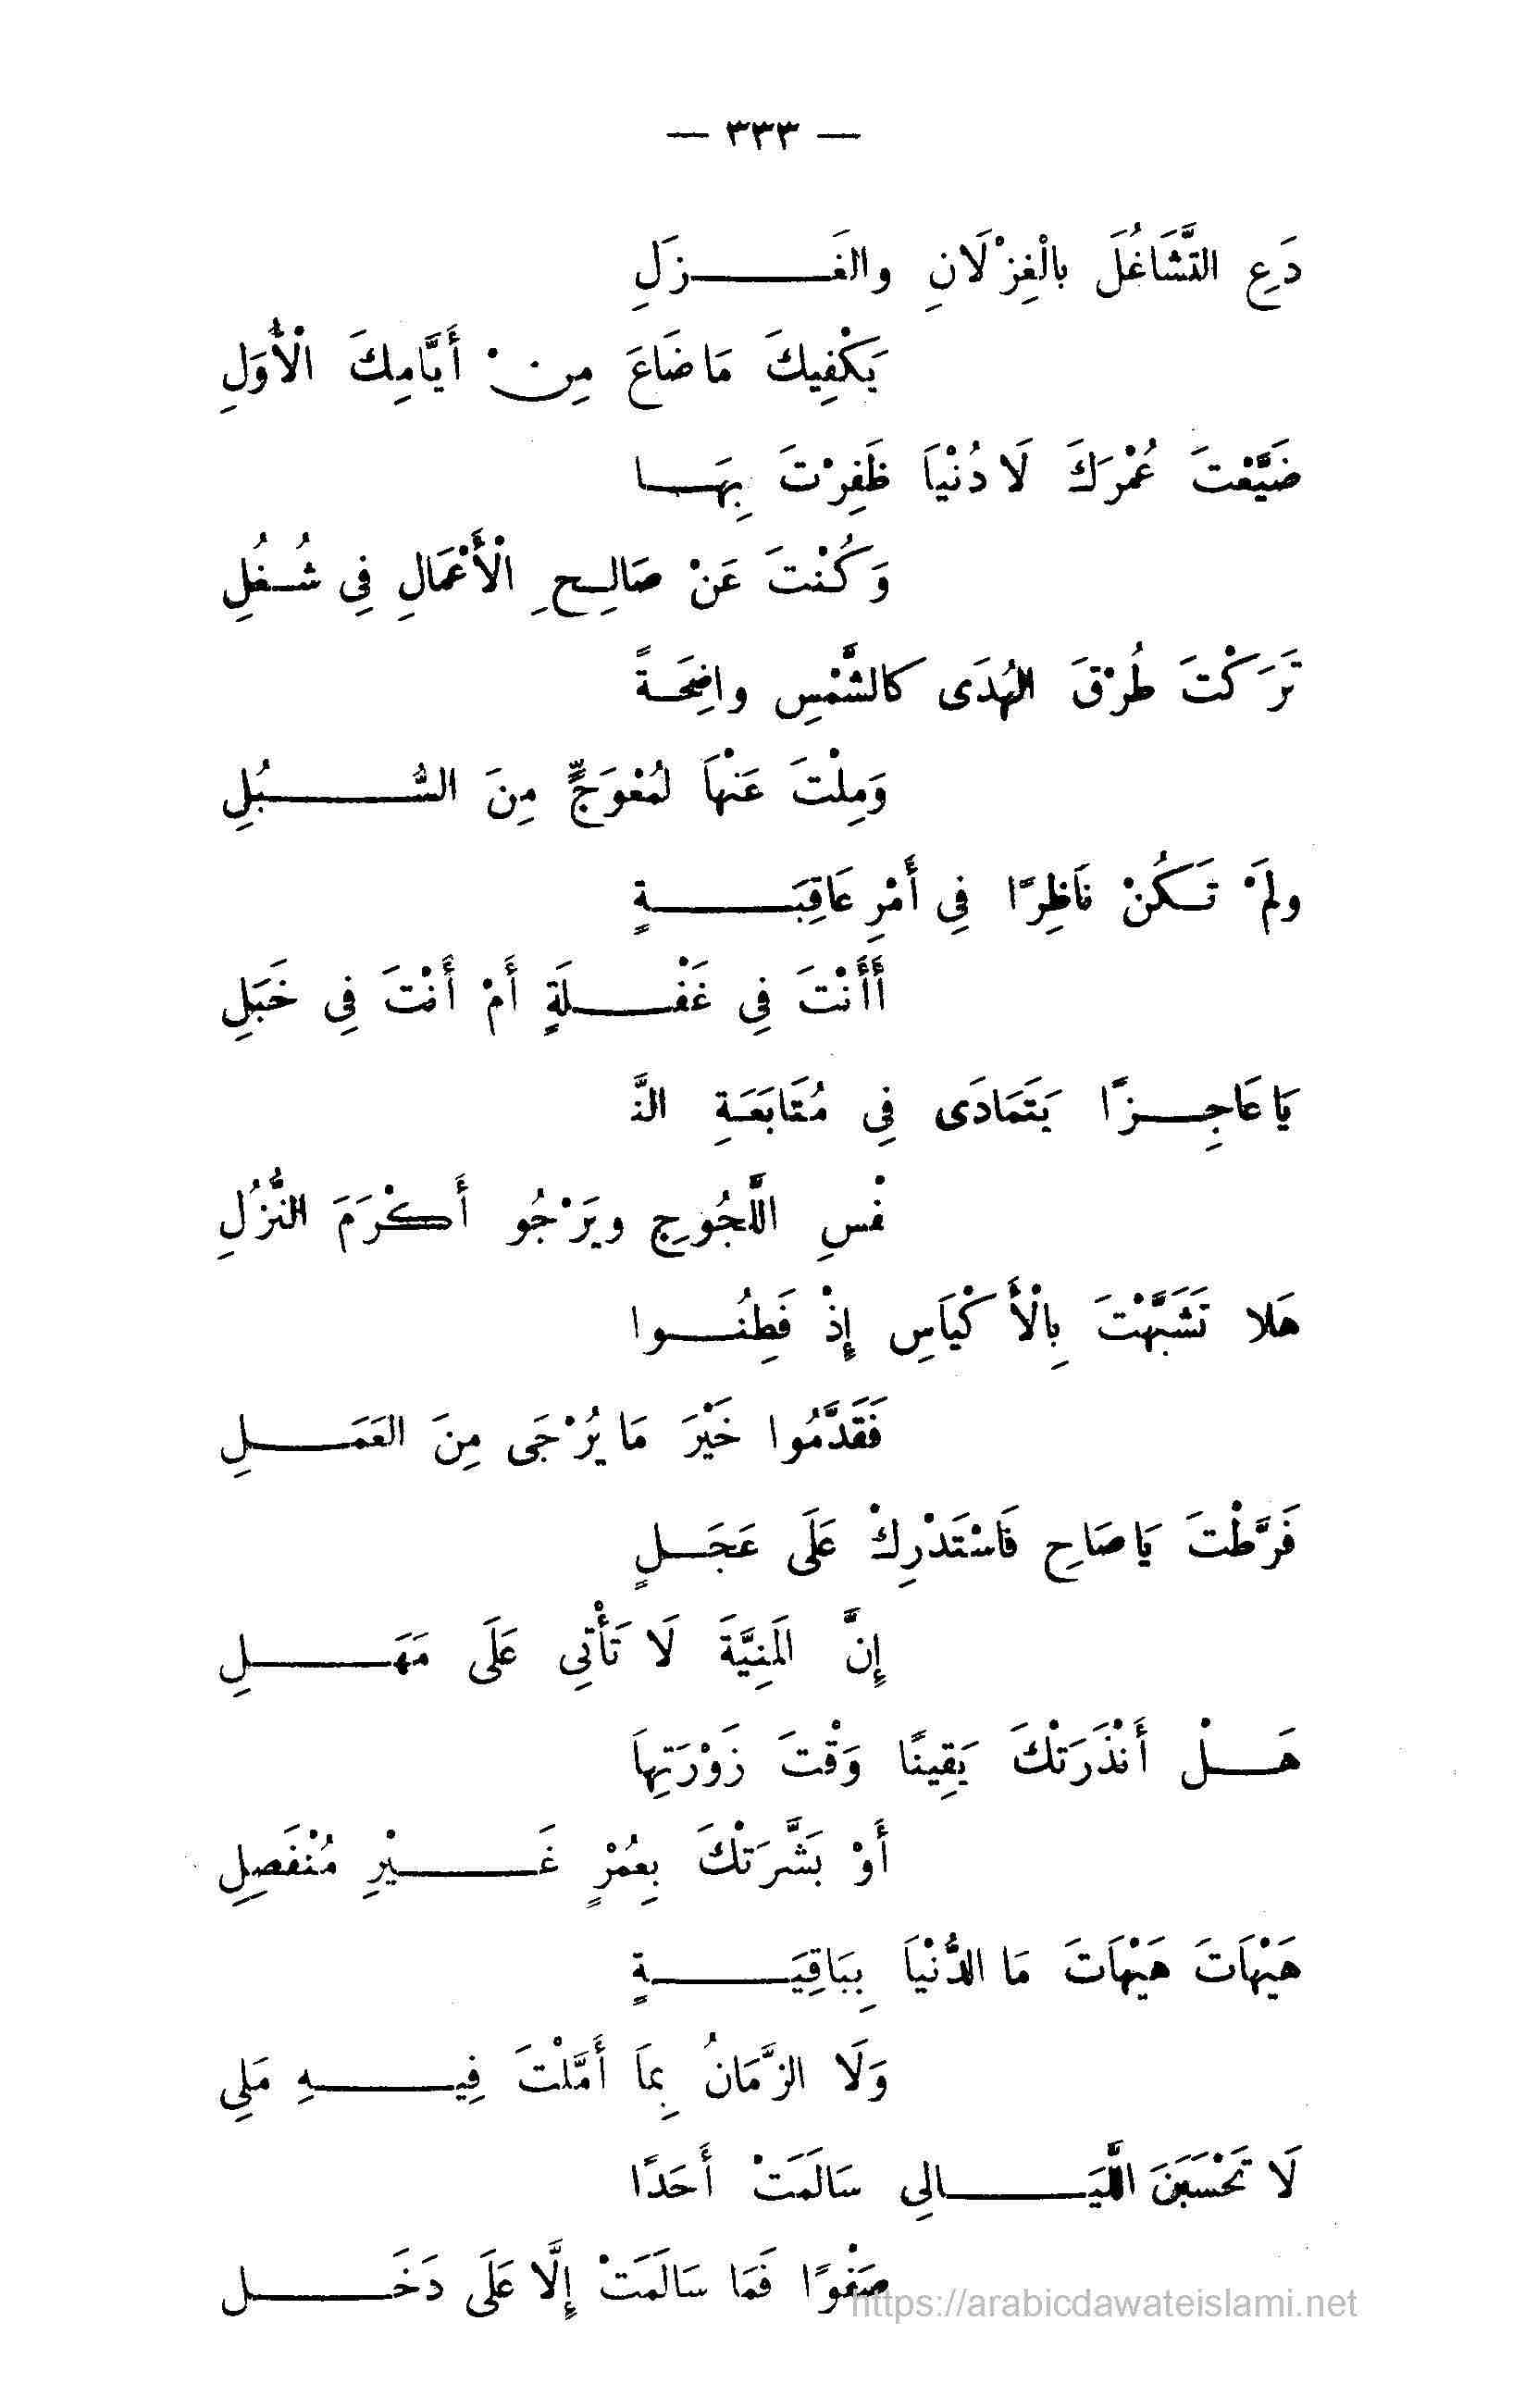 — ٣٣٣ —
دَعِ التَّشَاغُلَ بالْغِزْلَانِ والغَـــزَلِ
يَكْفِيكَ مَاضَاعَ مِنْ أَيَّامِكَ الْأُوَلِ
ضَيَّعْتَ عُمْرَكَ لَادُنْيَا ظَفِرْتَ بِهَــا
وَكُنْتَ عَنْ صَالِـحِ الْأَعْمَالِ فِى شُـغُلِ
تَرَكْتَ طُرْقَ الهُدَى كالشَّمْسِ واضِحَـةً
وَمِلْتَ عَنْهَا لمُعْوَجٍّ مِنَ السُّـــبُلِ
ولَمْ تَـكُنْ نَاظِرًا فِى أَمْرِ عَاقِبَـــةٍ
أَأَنْتَ فِى غَفْـــلَةٍ أَمْ أَنْتَ فِى خَبَلِ
يَاعَاجِـــزًا يَتَمَادَى فِى مُتَابَعَـةِ النَّـ
ـفْسِ اللَّجُوجِ ويَرْجُو أَكْرَمَ النُّزُلِ
هَلا تَشَبَّهْتَ بِالْأَكْيَاسِ إِذْ فَطِنُـــوا
فَقَدَّمُوا خَيْرَ مَايُرْجَى مِنَ العَمَـــلِ
فَرَّطْتَ يَاصَاحِ فَاسْتَدْرِكْ عَلَى عَجَـلٍ
إِنَّ المَنِيَّةَ لَا تَأْتِى عَلَى مَهَـــلِ
هَـــلْ أَنْذَرَتْكَ يَقِينًا وَقْتَ زَوْرَتِهَا
أَوْ بَشَّرَتْكَ بِعُمْرٍ غَـــيْرِ مُنْفَصِلِ
هَيْهَاتَ هَيْهَاتَ مَا الدُّنْيَا بِبَاقِيَـــةٍ
وَلَا الزَّمَانُ بِمَا أَمَّلْتَ فِيـــهِ مَلِى
لَا تَحْسَبَنَ اللَّيَـــالِى سَالَمَتْ أَحَدًا
صَفْوًا فَمَا سَالَمَتْ إِلَّا عَلَى دَخَـــل
https://arabicdawateislami.net